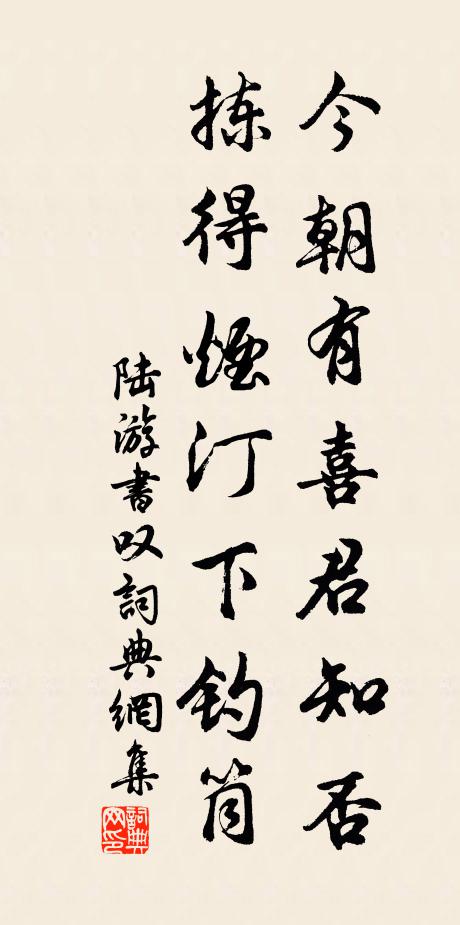 今朝有喜君知否
拣得煙汀下釣筒
陆游書叹詞典網集
詞典网印